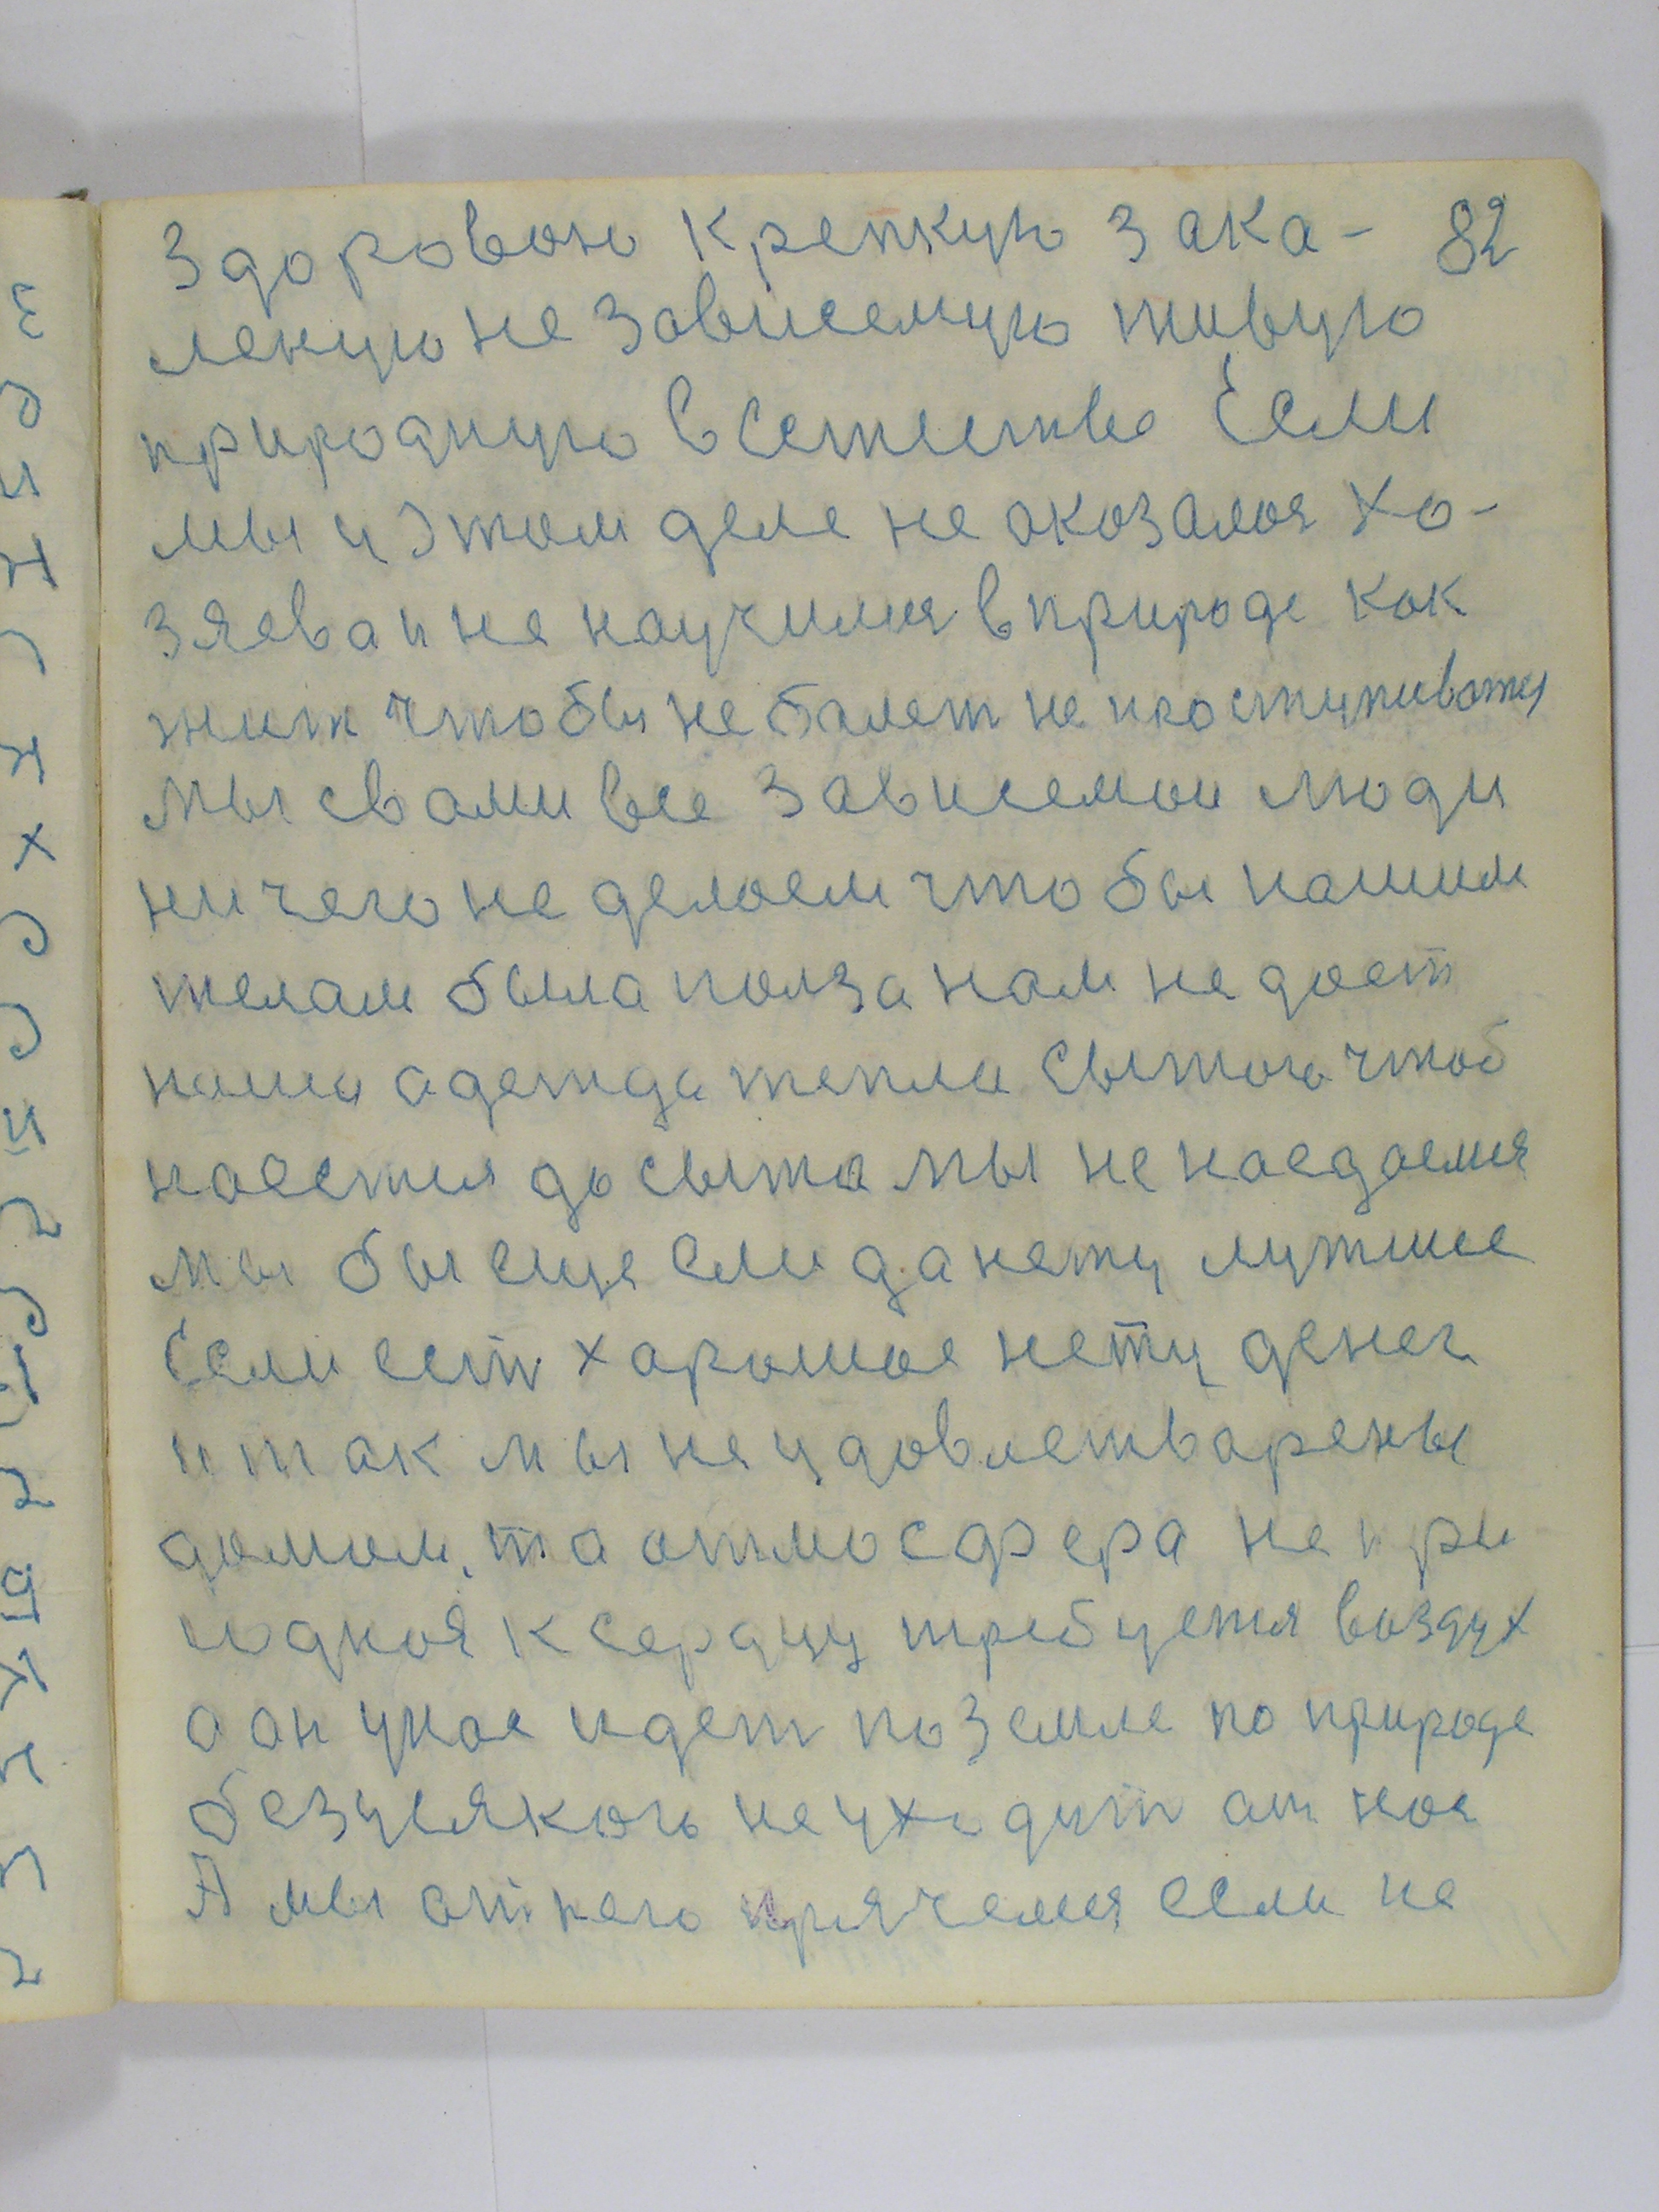 здоровою крепкую зака- 82
леную не зависемую живую
природную в сетестве Если
мы у этом деле не окозалося Хо-
зяева и не научился в природе как
жит чтобы не балет не простуживатя
мы свами все зависемои люди
ничего не делоем чтобы нашим
телам была полза нам не дает
наша адежда тепла сытого чтоб
наестися до сыта мы не наедаемся
мы бы еще ели да нету лутшее
Если ест харошое нету денег
и так мы не удовлетварены
домом, та атмосфера не при
годноя к сердцу требуется воздух
а он у нас идет по земле по природе
без усякого не уходит ат нас
А мы от него прячемся если не